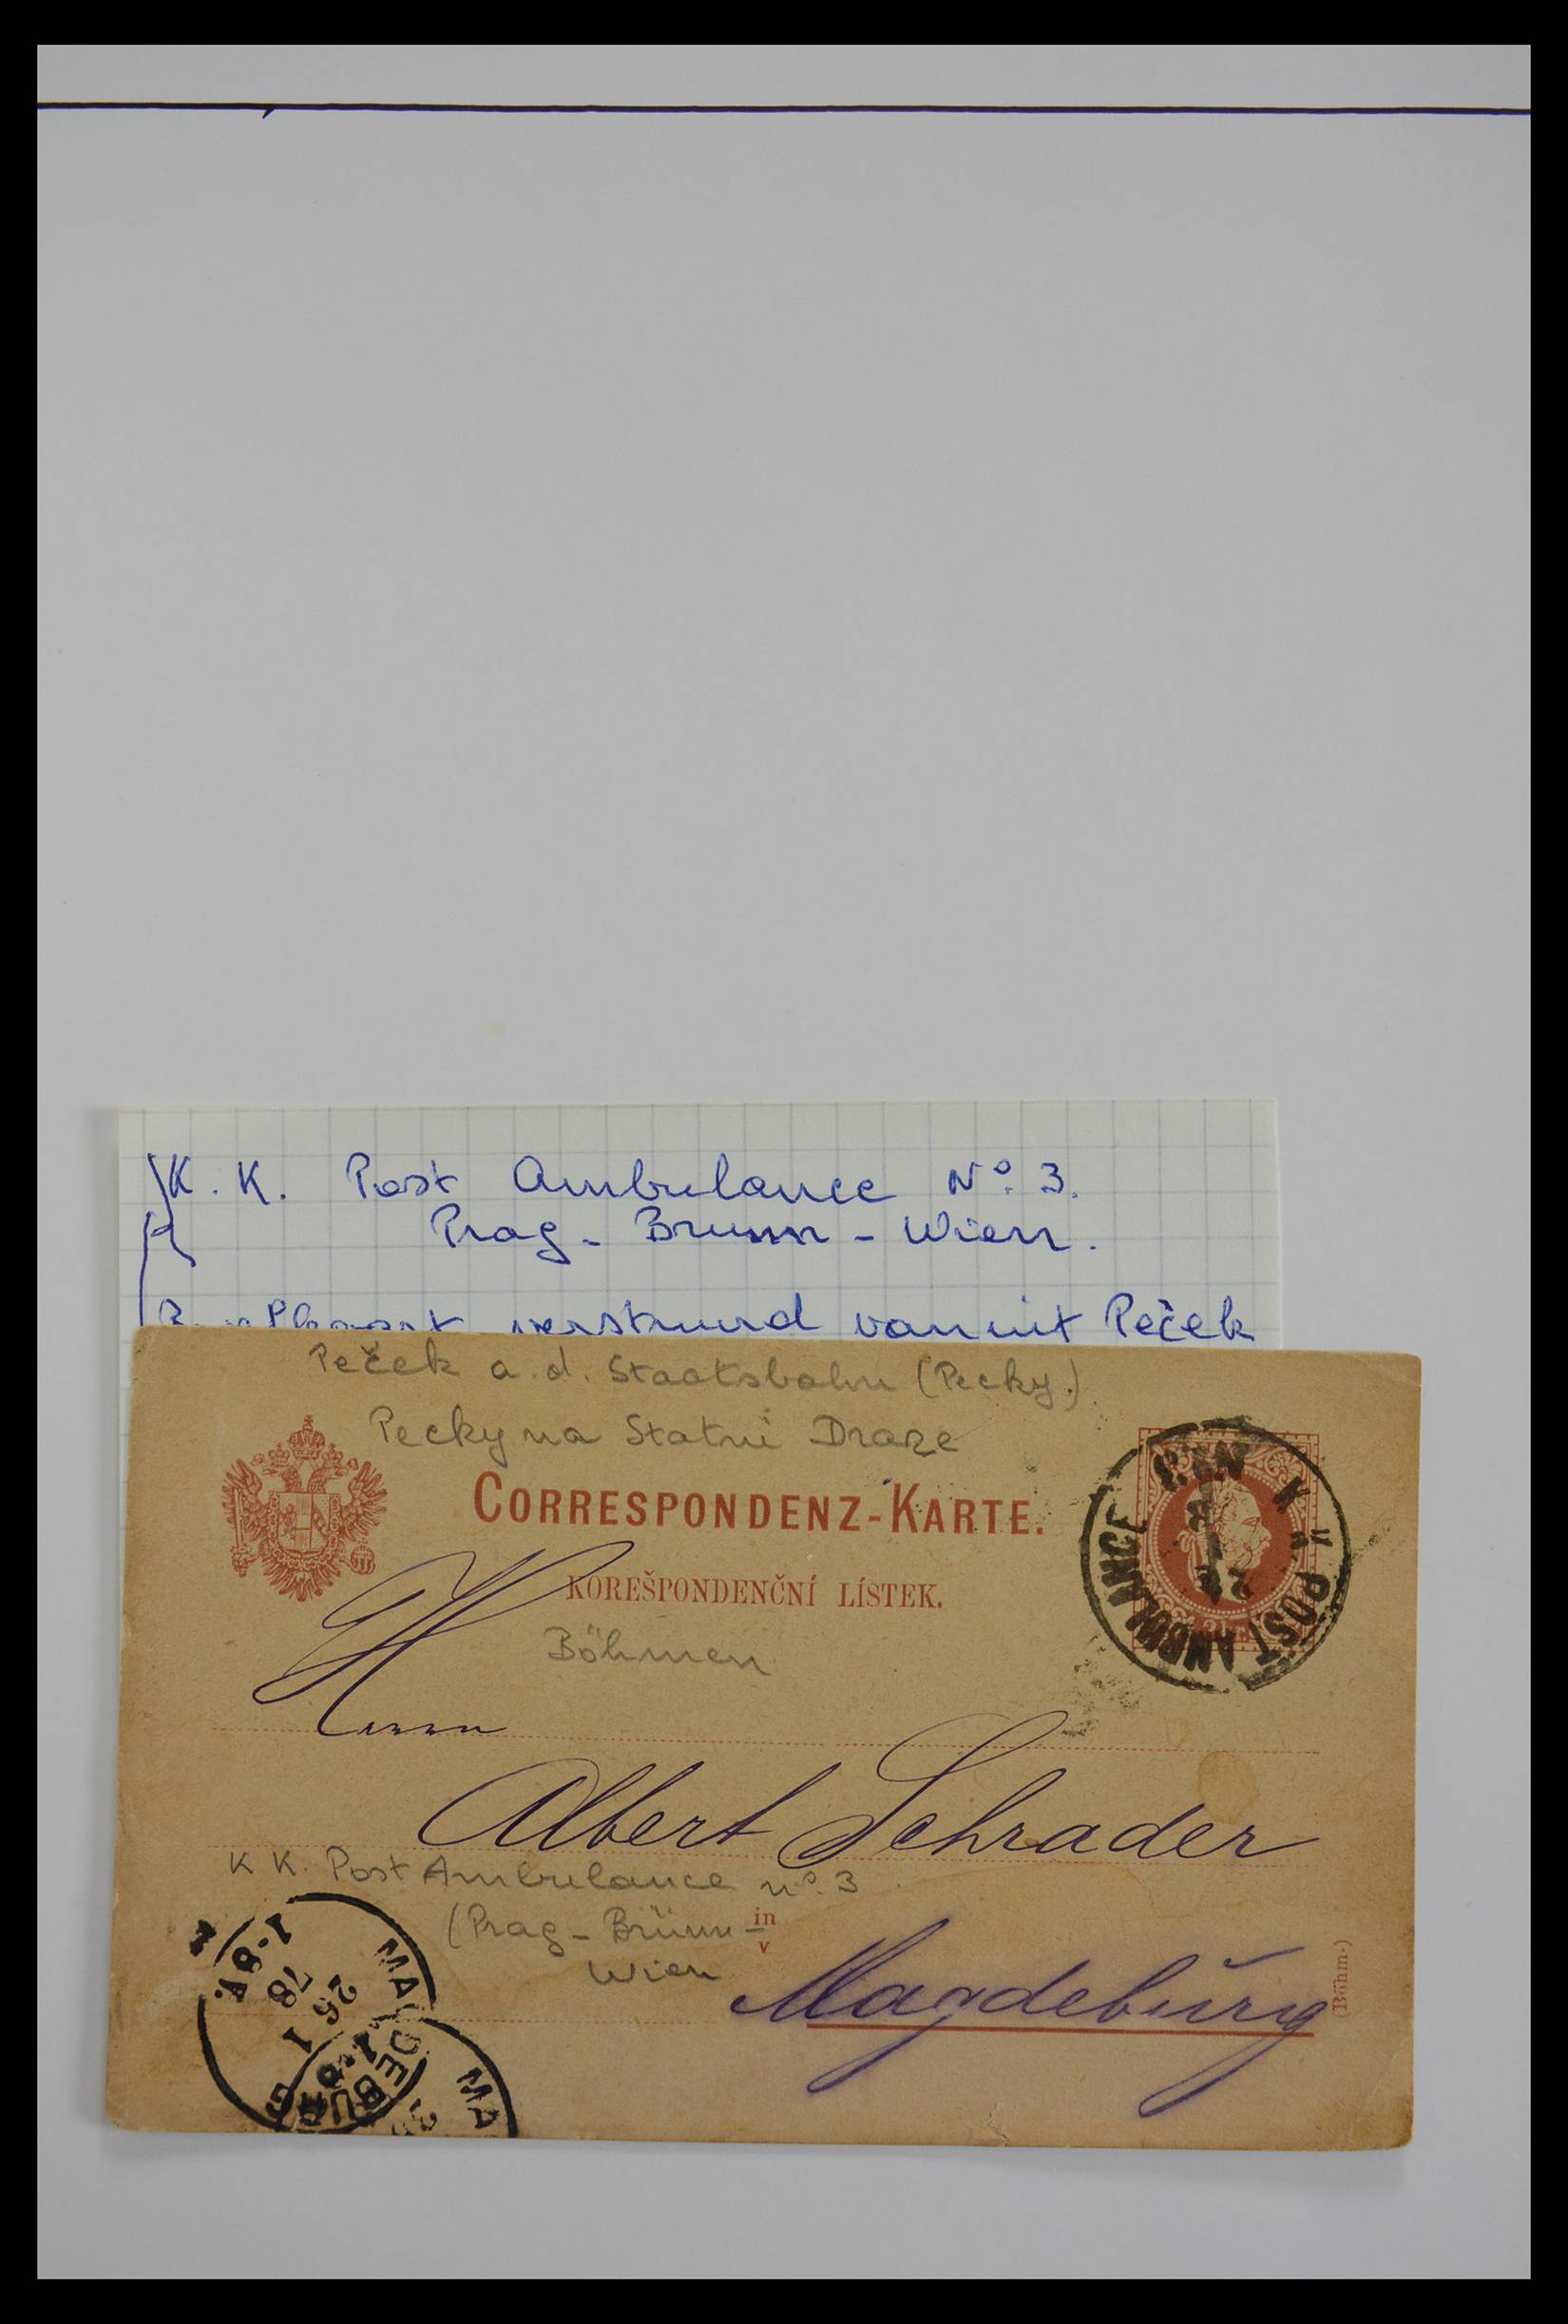 K. K. Post Ambulance Nº. 3.
Prag - Brunn - Wien.
verstuurd vanuit Peček
Peček a. d. Staatsbahn (Pecky.)
Pecky na Statni Draze
CORRESPONDENZ-KARTE.
KOREŠPONDENČNÍ LÍSTEK.
Böhmen
K. K. POST AMBULANCE
Herrn
Albert Schrader
K K. Post Ambulance nº. 3
(Prag - Brünn -
Wien
in
v
Magdeburg
(Böhm.)
MAGDEBURG
25 1
78
1-8V.
MA